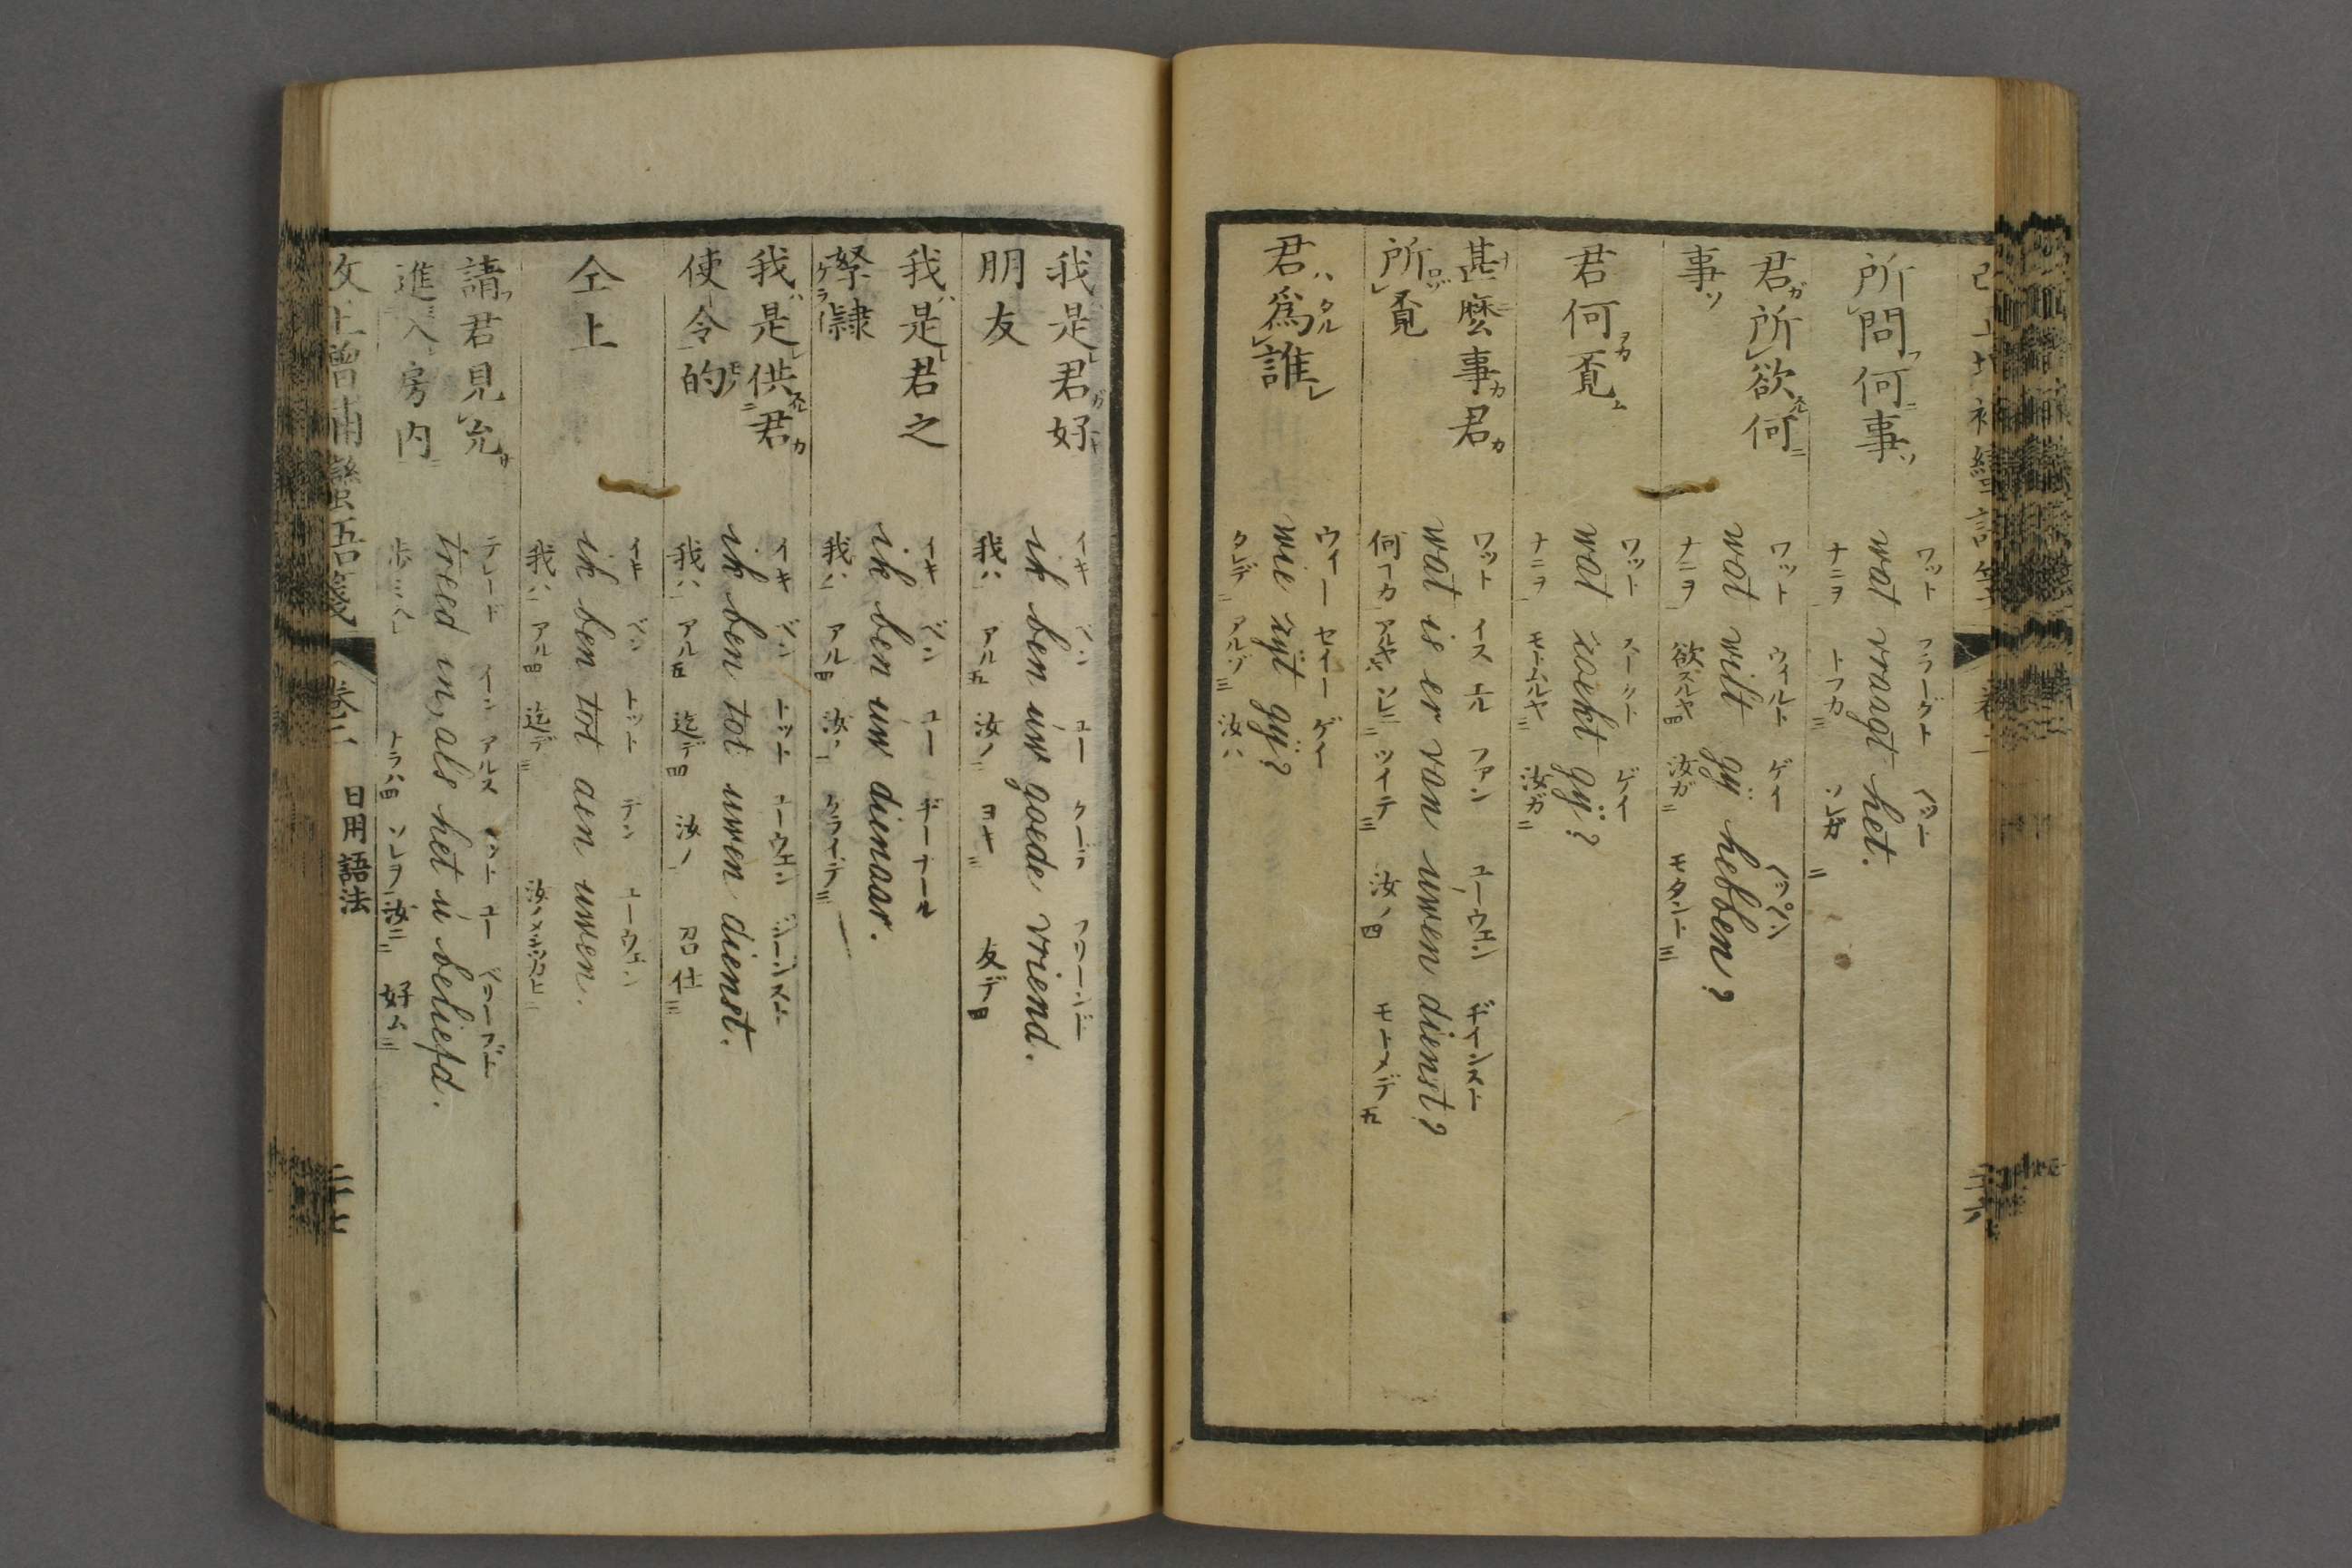 所問何事
ワット フラーグト ヘット
wat vraagt het.
ナニヲ一 トフカ三 ソレガ二
君所欲何
事
ワット ウィルト ゲイ ヘッペン
wat wilt gÿ hebben?
ナニヲ一 欲スルヤ四 汝ガ二 モタント三
君何覓
ワット スークト ゲイ
wat zoekt gÿ?
ナニヲ一 モトムルヤ三 汝ガ二
甚麽事君
所覓
ワット イス エル ファン ユーウエン ヂインスト
wat is er van uwen dienst?
何一カ アルヤ六 ソレニ二 ツイテ三 汝ノ四 モトメデ五
君爲誰
ウィー セイー ゲイ
wie zÿt gÿ?
タレデ二 アルゾ三 汝ハ
我是君好
朋友
イキ ベン ユー クーデ フリーンド
ik ben uw goede vriend.
我ハ一 アル五 汝ノ二 ヨキ三 友デ四
我是君之
䋈隷
イキ ベン ユー ヂーナール
ik ben uw dienaar.
我ハ アル四 汝ノ クライデ三
我是供君
使令的
イキ ベン トット ユーウエン ヂーンスト
ik ben tot uwen dienst.
我ハ アル五 迄デ四 汝ノ 召仕三
仝上
イキ ベン トット デン ユーウエン
ik ben tot den uwen.
我ハ アル四 迄デ三 汝ノメシツカヒ二
請君見允
進入房内
テレード イーン アルス ヘット ユー ベリーフド
treed in, als het ú beliefd.
歩ミ入レ トラハ四 ソレヲ 汝ニ二 好ム三
卷二
日用語法
二十七